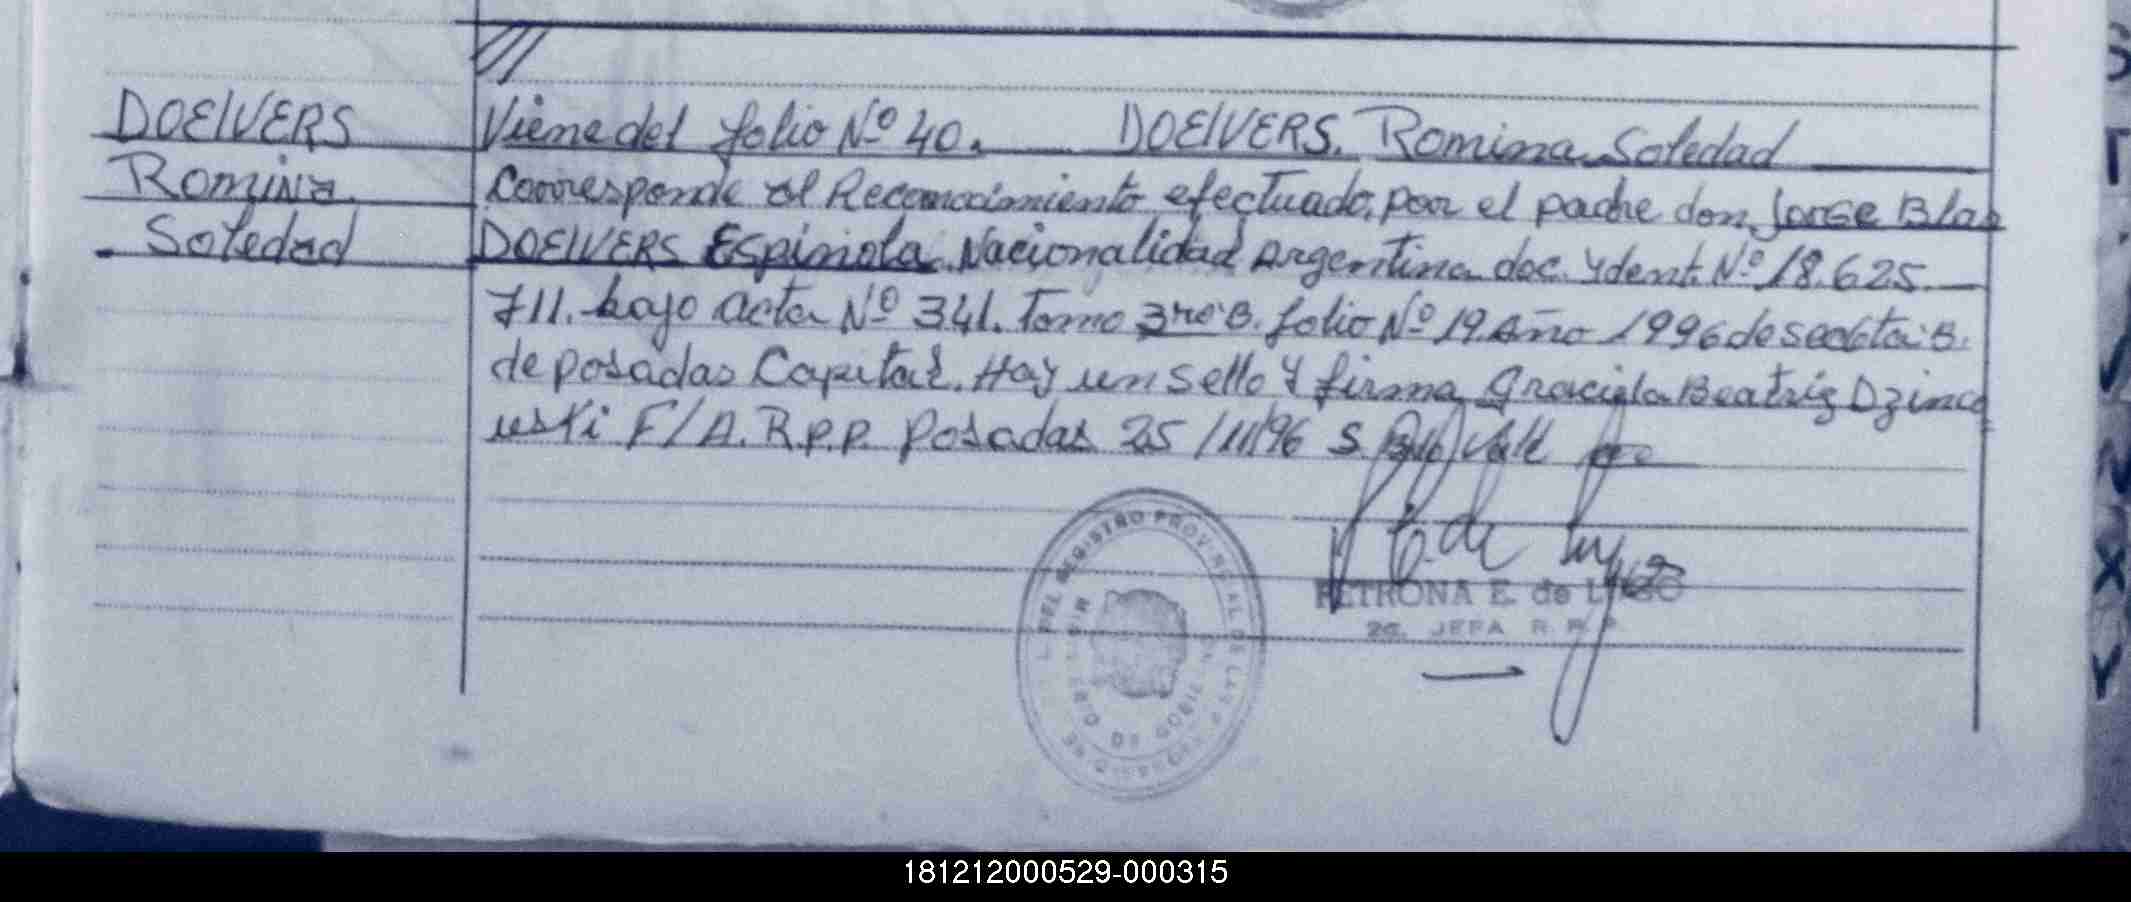 DOEIVERS
Romina
Soledad
Viene del folio Nº 40. DOEIVERS. Romina Soledad
Corresponde al Reconocimiento efectuado, por el padre don Jorge Blas
DOEIVERS Espinola Nacionalidad Argentina doc. Ydent. Nº 18.625.
711. bajo acta Nº 341. Tomo 3ro B. folio Nº 19. Año 1996 de secc
de Posadas Capital. Hay un sello y firma Graciela Beatriz Dzinco
uski F/A. R.P.P. Posadas 25/11/96 S.
REGISTRO PROVINCIAL DE LAS PERSONAS
PETRONA E. de LUGO
2a. JEFA R. P. P.
181212000529-000315